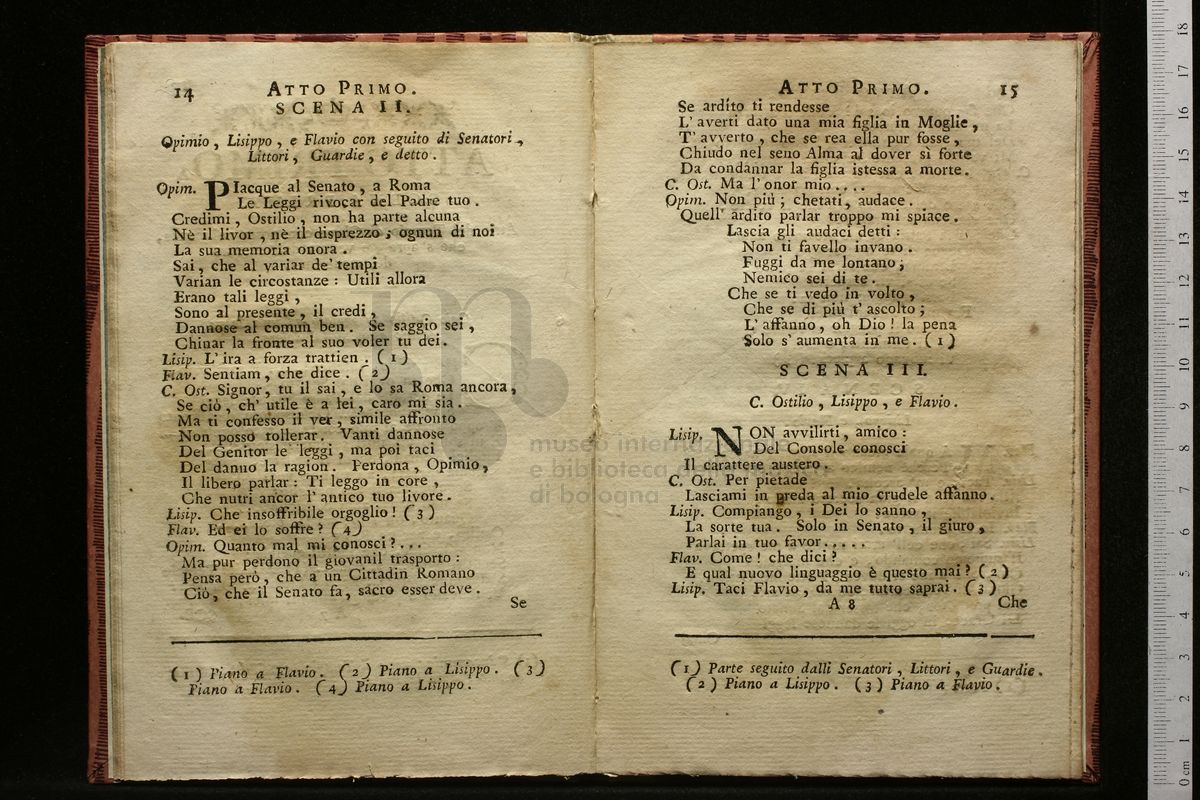 14 ATTO PRIMO.
SCENA II.
Opimio, Lisippo, e Flavio con seguito di Senatori,
Littori, Guardie, e detto.
Opim. PIacque al Senato, a Roma
Le Leggi rivocar del Padre tuo.
Credimi, Ostilio, non ha parte alcuna
Nè il livor, nè il disprezzo; ognun di noi
La sua memoria onora.
Sai, che al variar de' tempi
Varian le circostanze: Utili allora
Erano tali leggi,
Sono al presente, il credi,
Dannose al comun ben. Se saggio sei,
Chinar la fronte al suo voler tu dei.
Lisip. L'ira a forza trattien. (1)
Flav. Sentiam, che dice. (2)
C. Ost. Signor, tu il sai, e lo sa Roma ancora,
Se ciò, ch' utile è a lei, caro mi sia.
Ma ti confesso il ver, simile affronto
Non posso tollerar. Vanti dannose
Del Genitor le leggi, ma poi taci
Del danno la ragion. Perdona, Opimio,
Il libero parlar: Ti leggo in core,
Che nutri ancor l'antico tuo livore.
Lisip. Che insoffribile orgoglio! (3)
Flav. Ed ei lo soffre? (4)
Opim. Quanto mal mi conosci?...
Ma pur perdono il giovanil trasporto:
Pensa però, che a un Cittadin Romano
Ciò, che il Senato fa, sacro esser deve.
Se
(1) Piano a Flavio. (2) Piano a Lisippo. (3)
Piano a Flavio. (4) Piano a Lisippo.
ATTO PRIMO. 15
Se ardíto ti rendesse
L'averti dato una mia figlia in Moglie,
T'avverto, che se rea ella pur fosse,
Chiudo nel seno Alma al dover sì forte
Da condannar la figlia istessa a morte.
C. Ost. Ma l'onor mio....
Opim. Non più; chetati, audace.
Quell' ardito parlar troppo mi spiace.
Lascia gli audaci detti:
Non ti favello invano.
Fuggi da me lontano;
Nemico sei di te.
Che se ti vedo in volto,
Che se di più t'ascolto;
L'affanno, oh Dio! la pena
Solo s'aumenta in me. (1)
SCENA III.
C. Ostilio, Lisippo, e Flavio.
Lisip. NON avvilirti, amico:
Del Console conosci
Il carattere austero.
C. Ost. Per pietade
Lasciami in preda al mio crudele affanno.
Lisip. Compiango, i Dei lo sanno,
La sorte tua. Solo in Senato, il giuro,
Parlai in tuo favor.....
Flav. Come! che dici?
E qual nuovo linguaggio è questo mai? (2)
Lisip. Taci Flavio, da me tutto saprai. (3)
A 8 Che
(1) Parte seguito dalli Senatori, Littori, e Guardie.
(2) Piano a Lisippo. (3) Piano a Flavio.
museo internaz
e biblioteca d
di bologna
0 cm 1 2 3 4 5 6 7 8 9 10 11 12 13 14 15 16 17 18